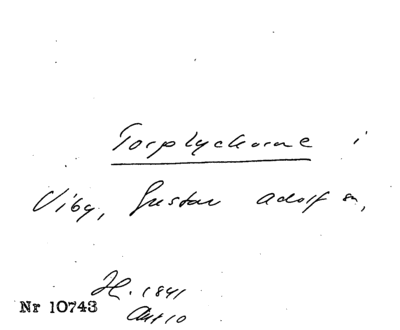 Torplyckorna i
Viby, Gustav Adolf sn,
H. 1841
Akt 10
Nr 10743